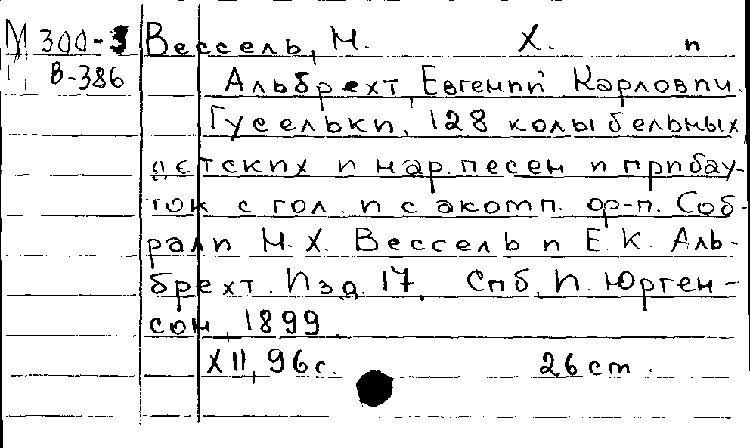 М 300-3 Вессель, М. Х. и
В-386 Альбрехт, Евгений Карлович.
Гусельки, 128 колыбельных,
детских и нар. песен и прибау-
ток с гол. и с акомп. ф-п. Соб-
рали М. Х. Вессель и Е. К. Аль-
брехт. Изд. 17. Спб, П. Юрген-
сон, 1899.
XII, 96 с. 26 cm.